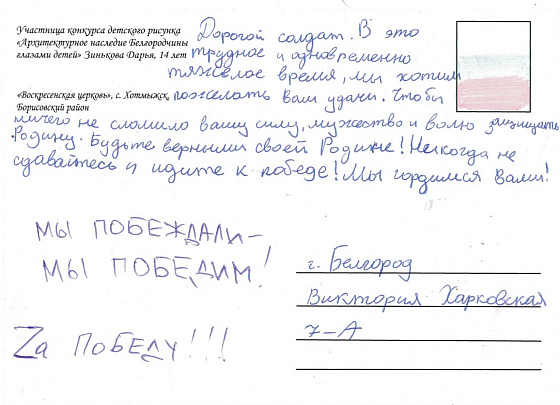 Участница конкурса детского рисунка
«Архитектурное наследие Белгородчины
глазами детей» Зинькова Дарья, 14 лет
«Воскресенская церковь», с. Хотмыжск,
Борисовский район
Дорогой солдат. В это
трудное и одновременно
тяжелое время, мы хотим
пожелать Вам удачи. Чтобы
ничего не сломило вашу силу, мужество и волю защищать
Родину. Будьте верными своей Родине! Никогда не
сдавайтесь и идите к победе! Мы гордимся Вами!
МЫ ПОБЕЖДАЛИ –
МЫ ПОБЕДИМ!
Zа ПОБЕДУ!!!
г. Белгород
Виктория Харковская
7-А